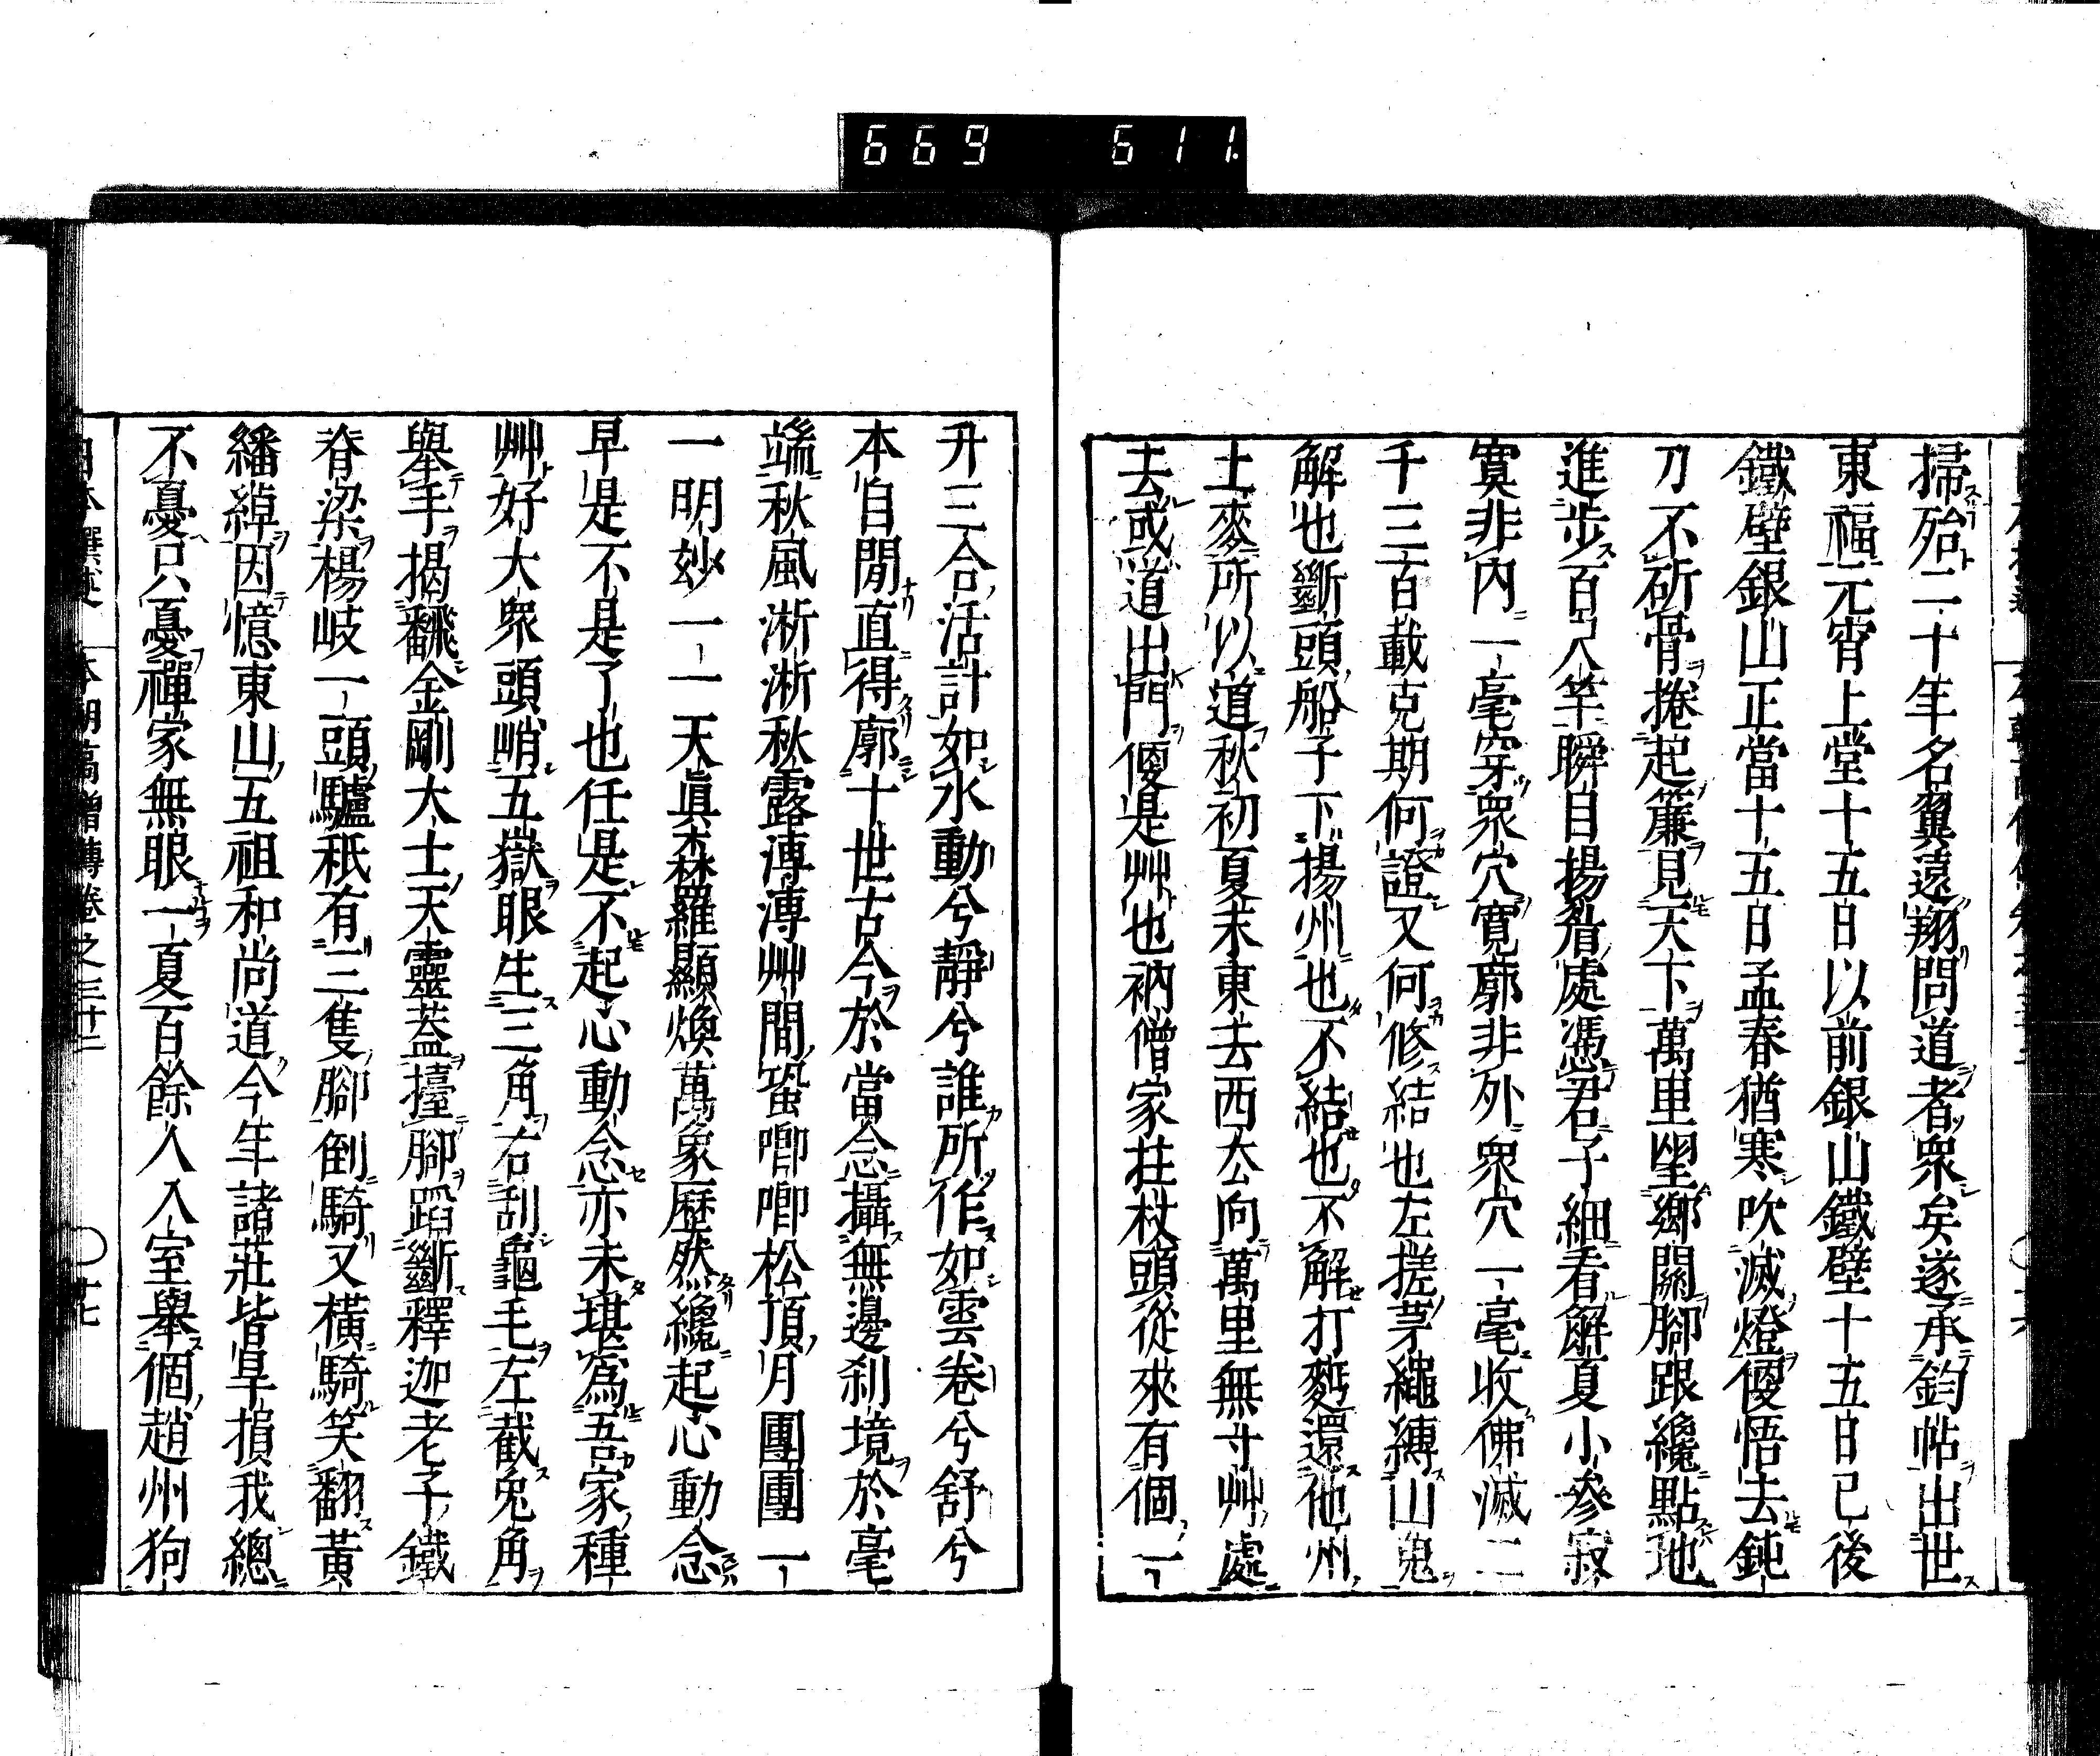 669 611.
掃殆二十年名翼遠翔問道者衆矣遂承鈞帖出世
東福元宵上堂十五日以前銀山鐵壁十五日已後
鐵壁銀山正當十五日孟春猶寒吹滅燈便悟去鈍
刀不斫骨捲起簾見天下萬里望鄉關腳跟纔點地
進步百尺竿瞬目揚眉處憑君子細看解夏小參寂
實非內一毫穿衆穴寬廓非外衆穴一毫收佛滅二
千三百載克期何證又何修結也左搓芧繩縛山鬼
解也斷頭船子下揚州也不結也不解打麪還他州
土麥所以道秋初夏末東去西去向萬里無寸艸處
去或道出門便是艸也衲僧家拄杖頭從來有個一
升三合活計如水動兮靜兮誰所作如雲卷兮舒兮
本自閒直得廓十世古今於當念攝無邊刹境於毫
端秋風淅淅秋露漙漙艸間蛩唧唧松頂月團團一
一明妙一一天眞森羅顯煥萬象歷然纔起心動念
早是不是了也任是不起心動念亦未堪爲吾家種
艸好大衆頭峭五嶽眼生三角右刮龜毛左截兔角
擧手揭翻金剛大士天靈蓋擡腳蹈斷釋迦老子鐵
脊梁楊岐一頭驢秖有三隻腳倒騎又橫騎笑翻黃
繙綽因憶東山五祖和尚道今年諸莊皆旱損我總
不憂只憂禪家無眼一夏百餘人入室擧個趙州狗
日本撰述 本朝高僧傳卷之三十二 〇 十七